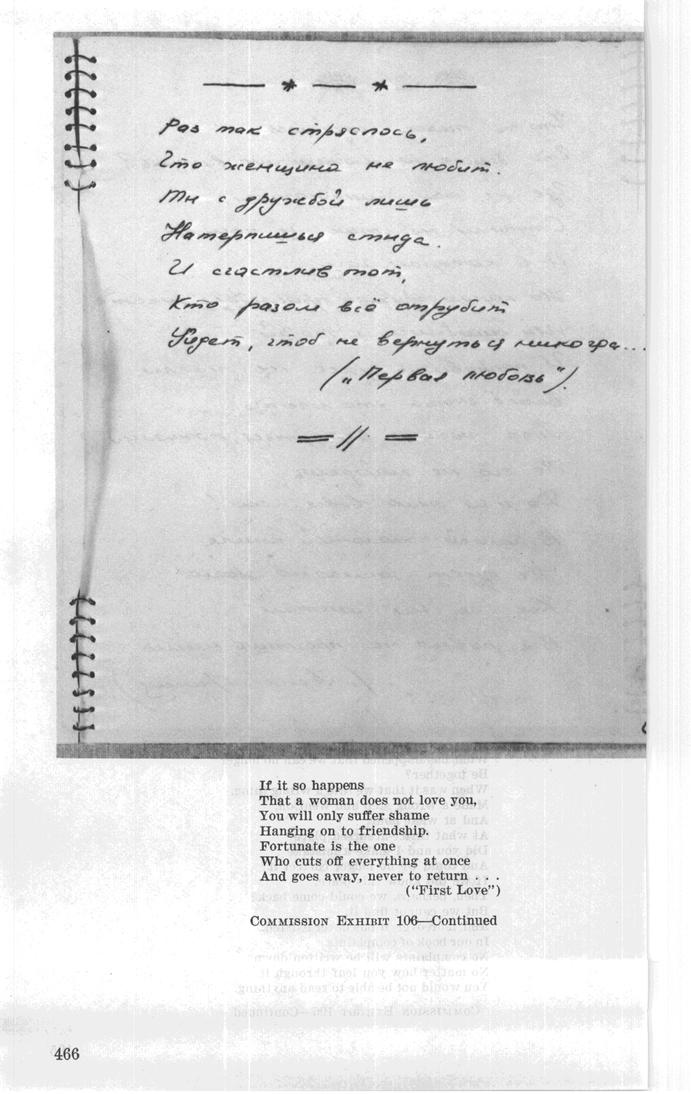 — * — * —
Раз так стряслось,
Что женщина не любит.
Ты с дружбой лишь
Натерпишься стыда.
И счастлив тот,
Кто разом всё отрубит
Уйдет, чтоб не вернуться никогда...
("Первая любовь").
= // =
If it so happens
That a woman does not love you,
You will only suffer shame
Hanging on to friendship.
Fortunate is the one
Who cuts off everything at once
And goes away, never to return . . .
("First Love")
COMMISSION EXHIBIT 106—Continued
466